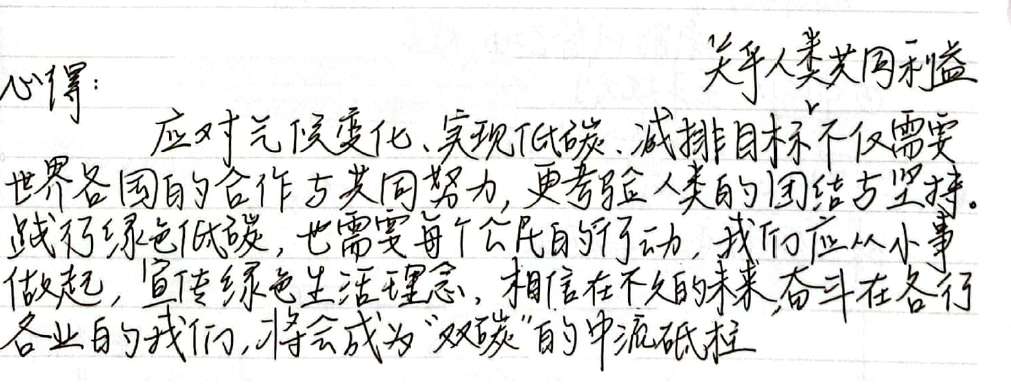 关乎人类共同利益
心得:
应对气候变化、实现低碳、减排目标不仅需要
世界各国的合作与共同努力,更考验人类的团结与坚持。
践行绿色低碳,也需要每个公民的行动,我们应从小事
做起,宣传绿色生活理念,相信在不久的未来,奋斗在各行
各业的我们,将会成为“双碳”的中流砥柱